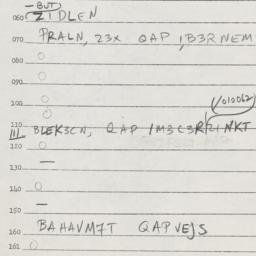 —BUT
060 ZIDLEN
070 PRALN, 23X QAP, B3RNEM
080
090
100 (/010062)
110 BLEK3CN, QAP /M3C3R/21NKT
120
130
140
150
BAHAVM7T QAPVEJS
160
161